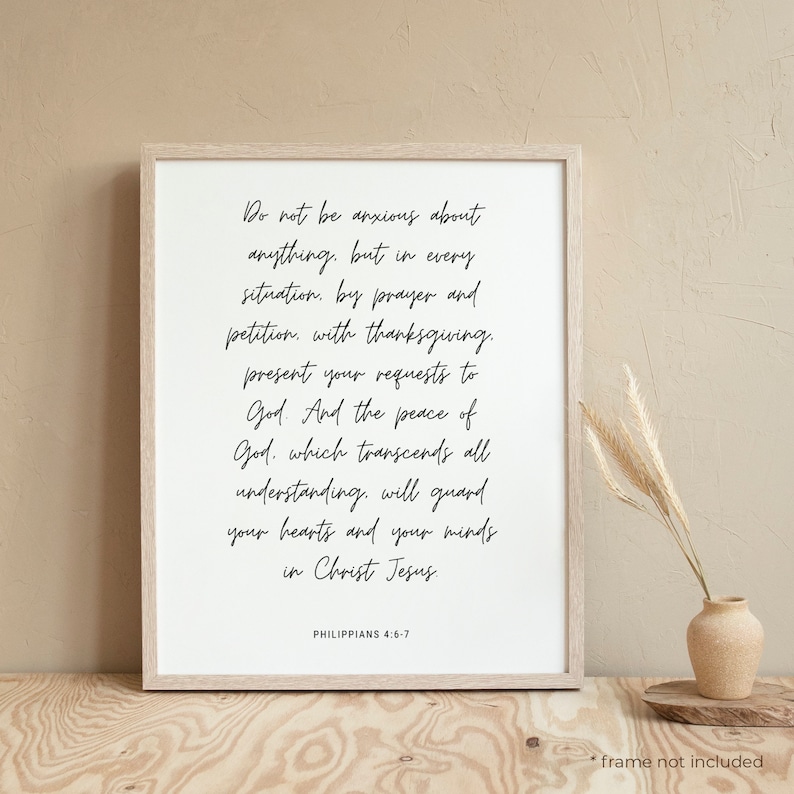 Do not be anxious about
anything, but in every
situation, by prayer and
petition, with thanksgiving,
present your requests to
God. And the peace of
God, which transcends all
understanding, will guard
your hearts and your minds
in Christ Jesus.
PHILIPPIANS 4:6-7
* frame not included